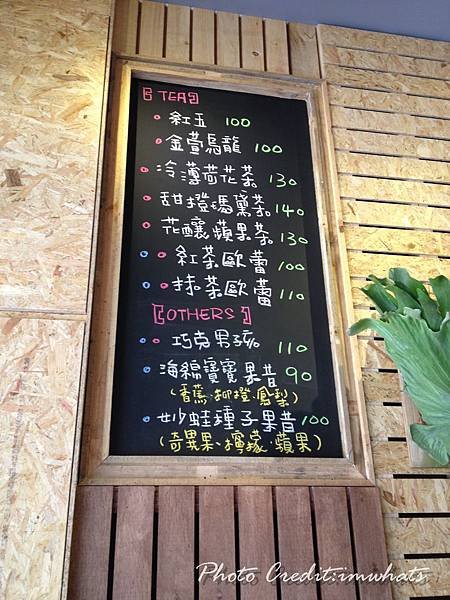 [TEA]
紅玉 100
金萱烏龍 100
冷薄荷花茶 130
甜橙瑪黛茶 140
花釀蘋果茶 130
紅茶歐蕾 100
抹茶歐蕾 110
[OTHERS]
巧克男孩 110
海綿寶寶果昔 90
(香蕉·柳橙·鳳梨)
妙蛙種子果昔 100
(奇異果、檸檬·蘋果)
Photo Credit:imwhats